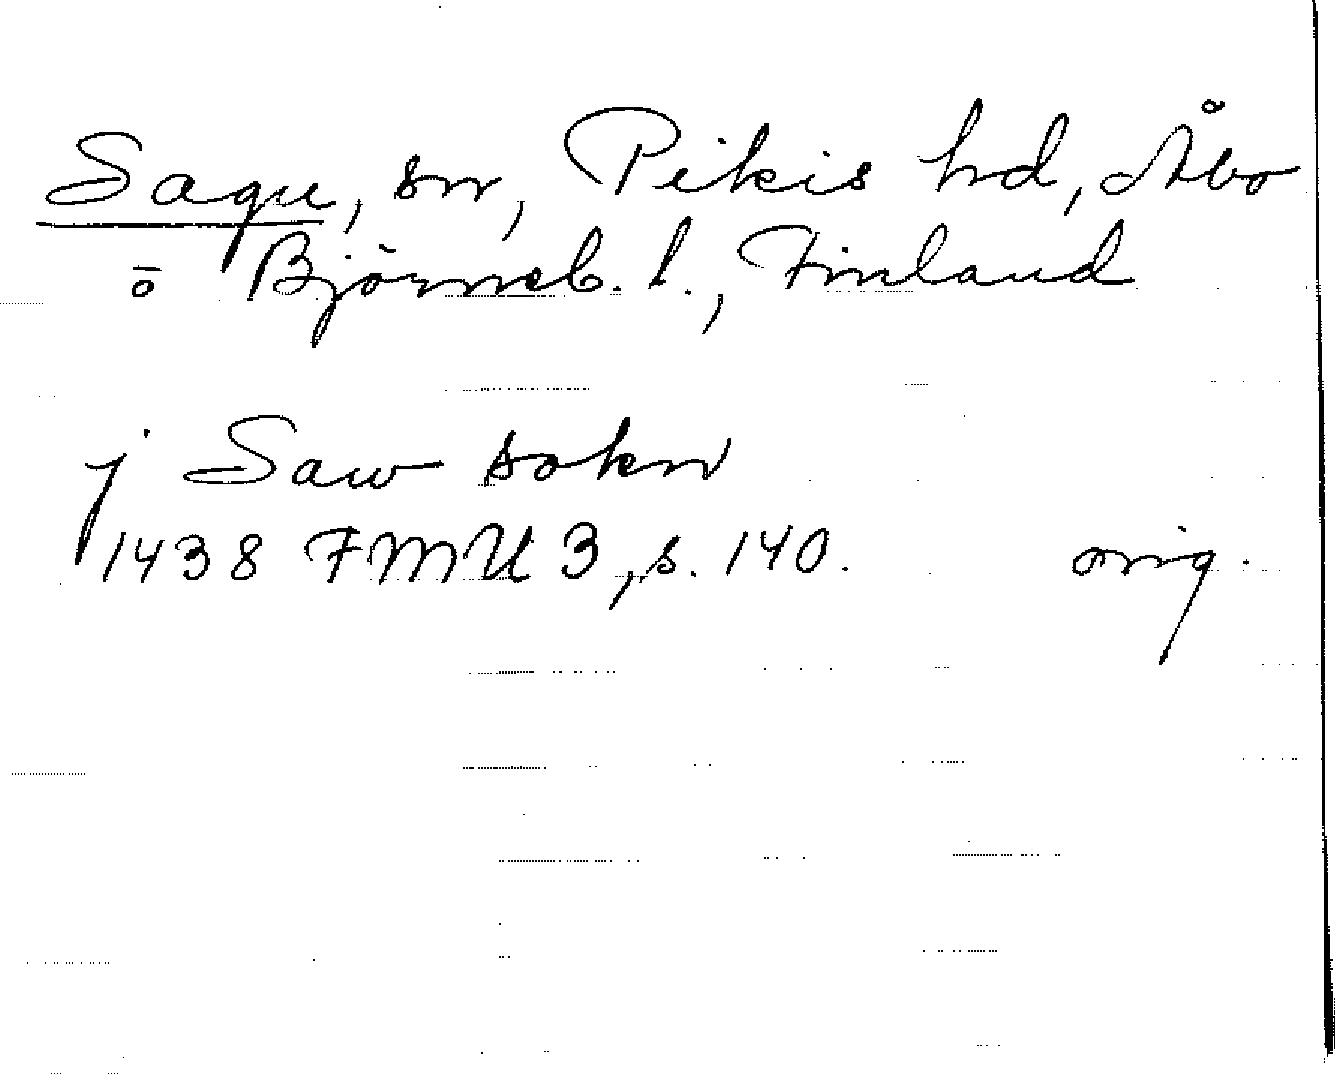 Sagu, sn, Pikis hd, Åbo
o Björneb. l., Finland
j Saw sokn
1438 FMU 3, s. 140. orig.